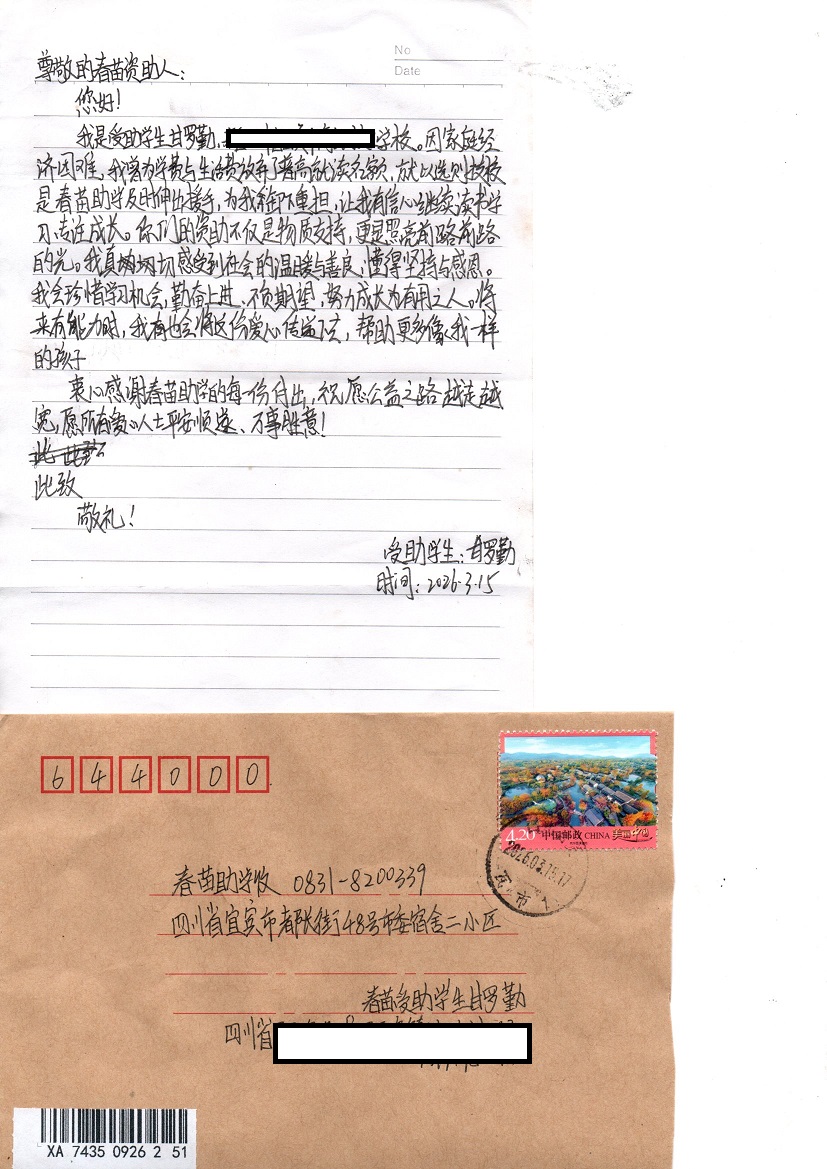 No
Date
尊敬的春苗资助人：
您好！
我是受助学生甘罗勤，学校。因家庭经
济困难，我曾为学费与生活费放弃了普高就读名额，
是春苗助学及时伸出援手，为我卸下重担，让我有信心继续读书学
习、专注成长。你们的资助不仅是物质支持，更是照亮前路前路
的光。我真切切感受到社会的温暖与善良，懂得坚持与感恩。
我会珍惜学习机会，勤奋上进、不负期望，努力成长为有用之人。将
来有能力时，我也会将这份爱心传递下去，帮助更多像我一样
的孩子
衷心感谢春苗助学的每一份付出，祝愿公益之路越走越
宽，愿所有爱心人士平安顺遂、万事胜意！
此致
敬礼！
受助学生：甘罗勤
时间：2026.3.15
644000
4.20 中国邮政 CHINA 美丽中国
2026.03.15.17
春苗助学收 0831-8200339
四川省宜宾市都长街48号市委宿舍二小区
春苗受助学生甘罗勤
四川省
XA 7435 0926 2 51